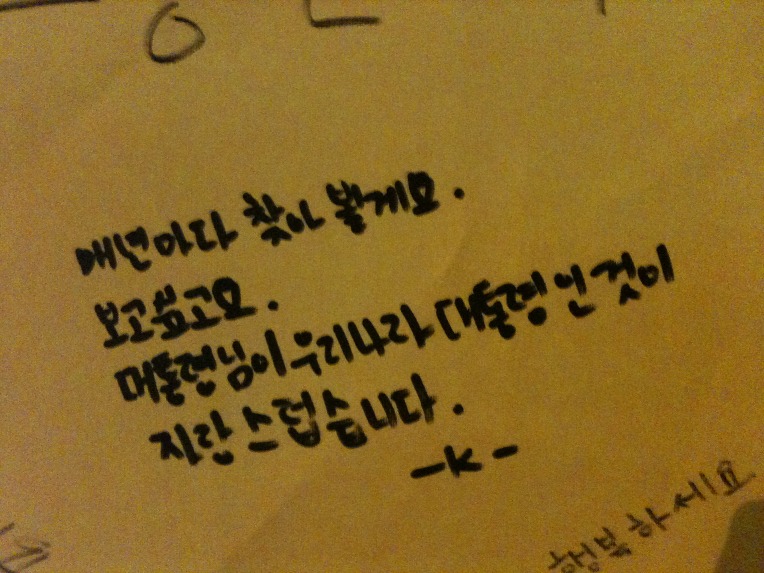 매년마다 찾아 뵐게요.
보고싶고요.
대통령님이 우리나라 대통령인것이
자랑스럽습니다.
-K-
행복하세요